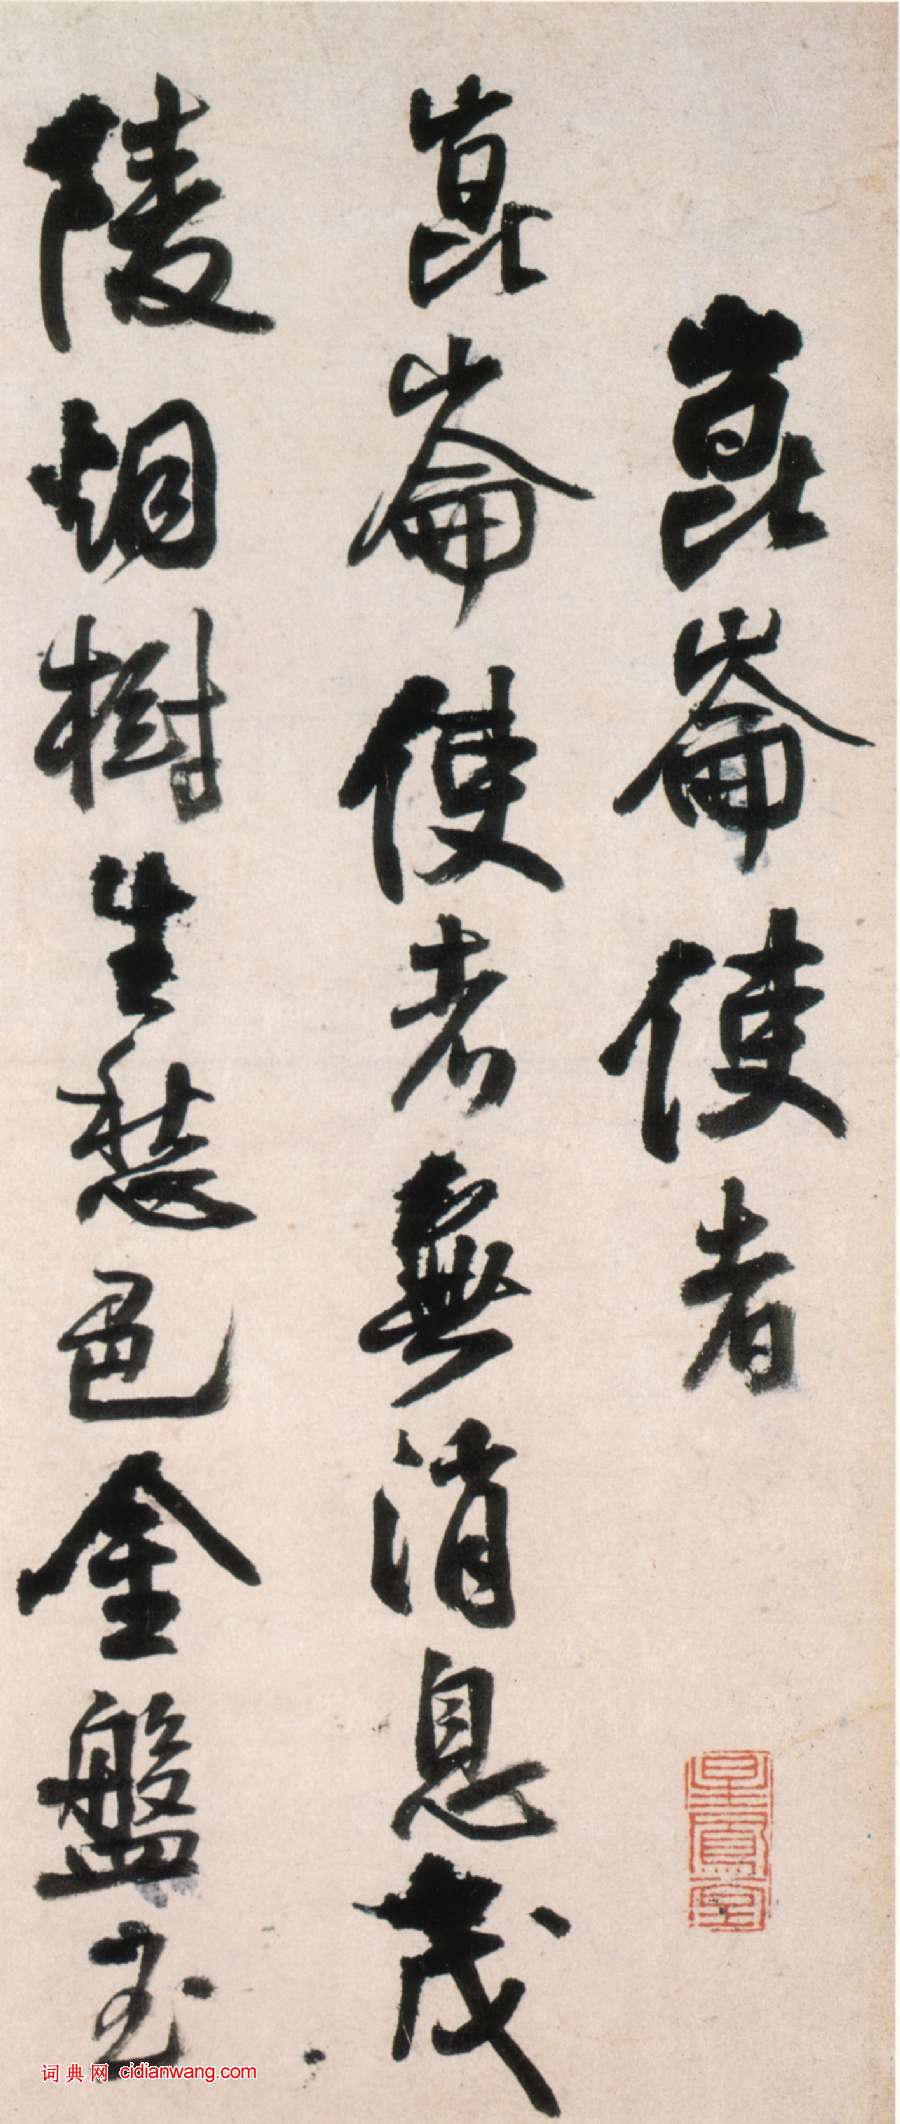 崑崙使者
崑崙使者無消息茂
陵烟樹生愁色金盤玉
词典网 cidianwang.com